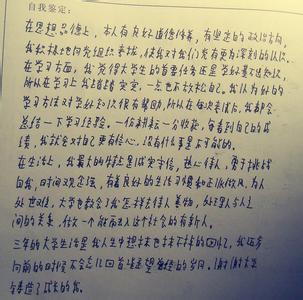 自我鉴定:
在思想品德上,本人有良好道德修养,有坚定的政治方向,
我积极地向党组织靠拢,使我对我们党有更为深刻的认识。
在学习方面,我觉得大学生的首要任务还是学好专业知识,
所以在学习上我踏踏实实,一点也不放松自己。我认为好的
学习方法对学好知识很有帮助,所以在每次考试后,我都会
总结一下学习经验。一份耕耘一分收获,每看到自己的成
绩,我就会对自己更有信心,没有什么事是不可能的。
在生活上,我最大的特点是诚实守信,热心待人,勇于挑战
自我,时间观念强,有着良好的生活习惯和正派作风。为人
处世
大学也教会了我怎样去待人善物,处理人与人之
间的关系,做一个能融入这个社会的有新人。
三年的大学生活是我人生中想抹也抹不掉的回忆,我还有
向前的时候不会忘记回首
的岁月。谢谢大学
了成长的我。